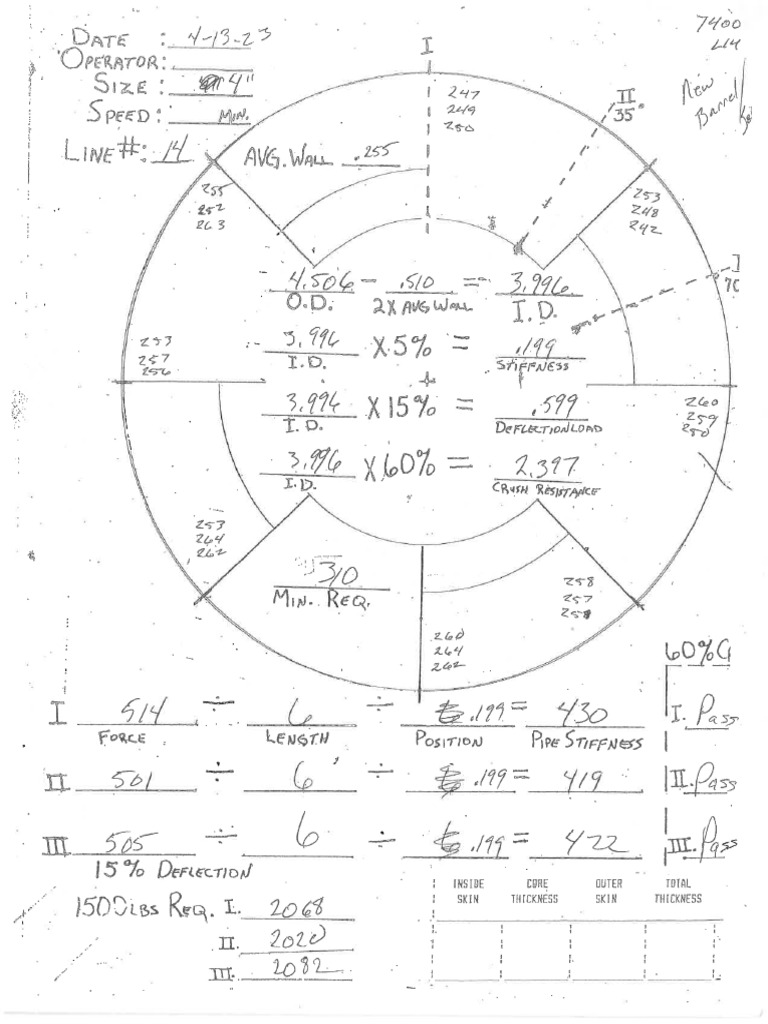 DATE : 4-13-23
OPERATOR:
SIZE : 4"
SPEED: MIN.
LINE#: 14
7400
L14
New
Barrel
I
II
35°
AVG. WALL .255
247
249
250
255
252
263
253
248
242
70
4.506 - .510 = 3.996
O.D. 2X AVG WALL I.D.
3.996 X 5% = .199
I.D. STIFFNESS
253
257
256
3.996 X 15% = .599
I.D. DEFLECTION LOAD
260
259
250
3.996 X 60% = 2.397
I.D. CRUSH RESISTANCE
253
264
262
310
MIN. REQ.
258
257
258
260
264
262
60%
I 514 ÷ 6 ÷ .199 = 430 I. Pass
FORCE LENGTH POSITION PIPE STIFFNESS
II 501 ÷ 6 ÷ .199 = 419 II. Pass
III 505 ÷ 6 ÷ .199 = 422 III. Pass
15% DEFLECTION
1500 LBS REQ. I. 2068
II. 2020
III. 2082
INSIDE SKIN CORE THICKNESS OUTER SKIN TOTAL THICKNESS